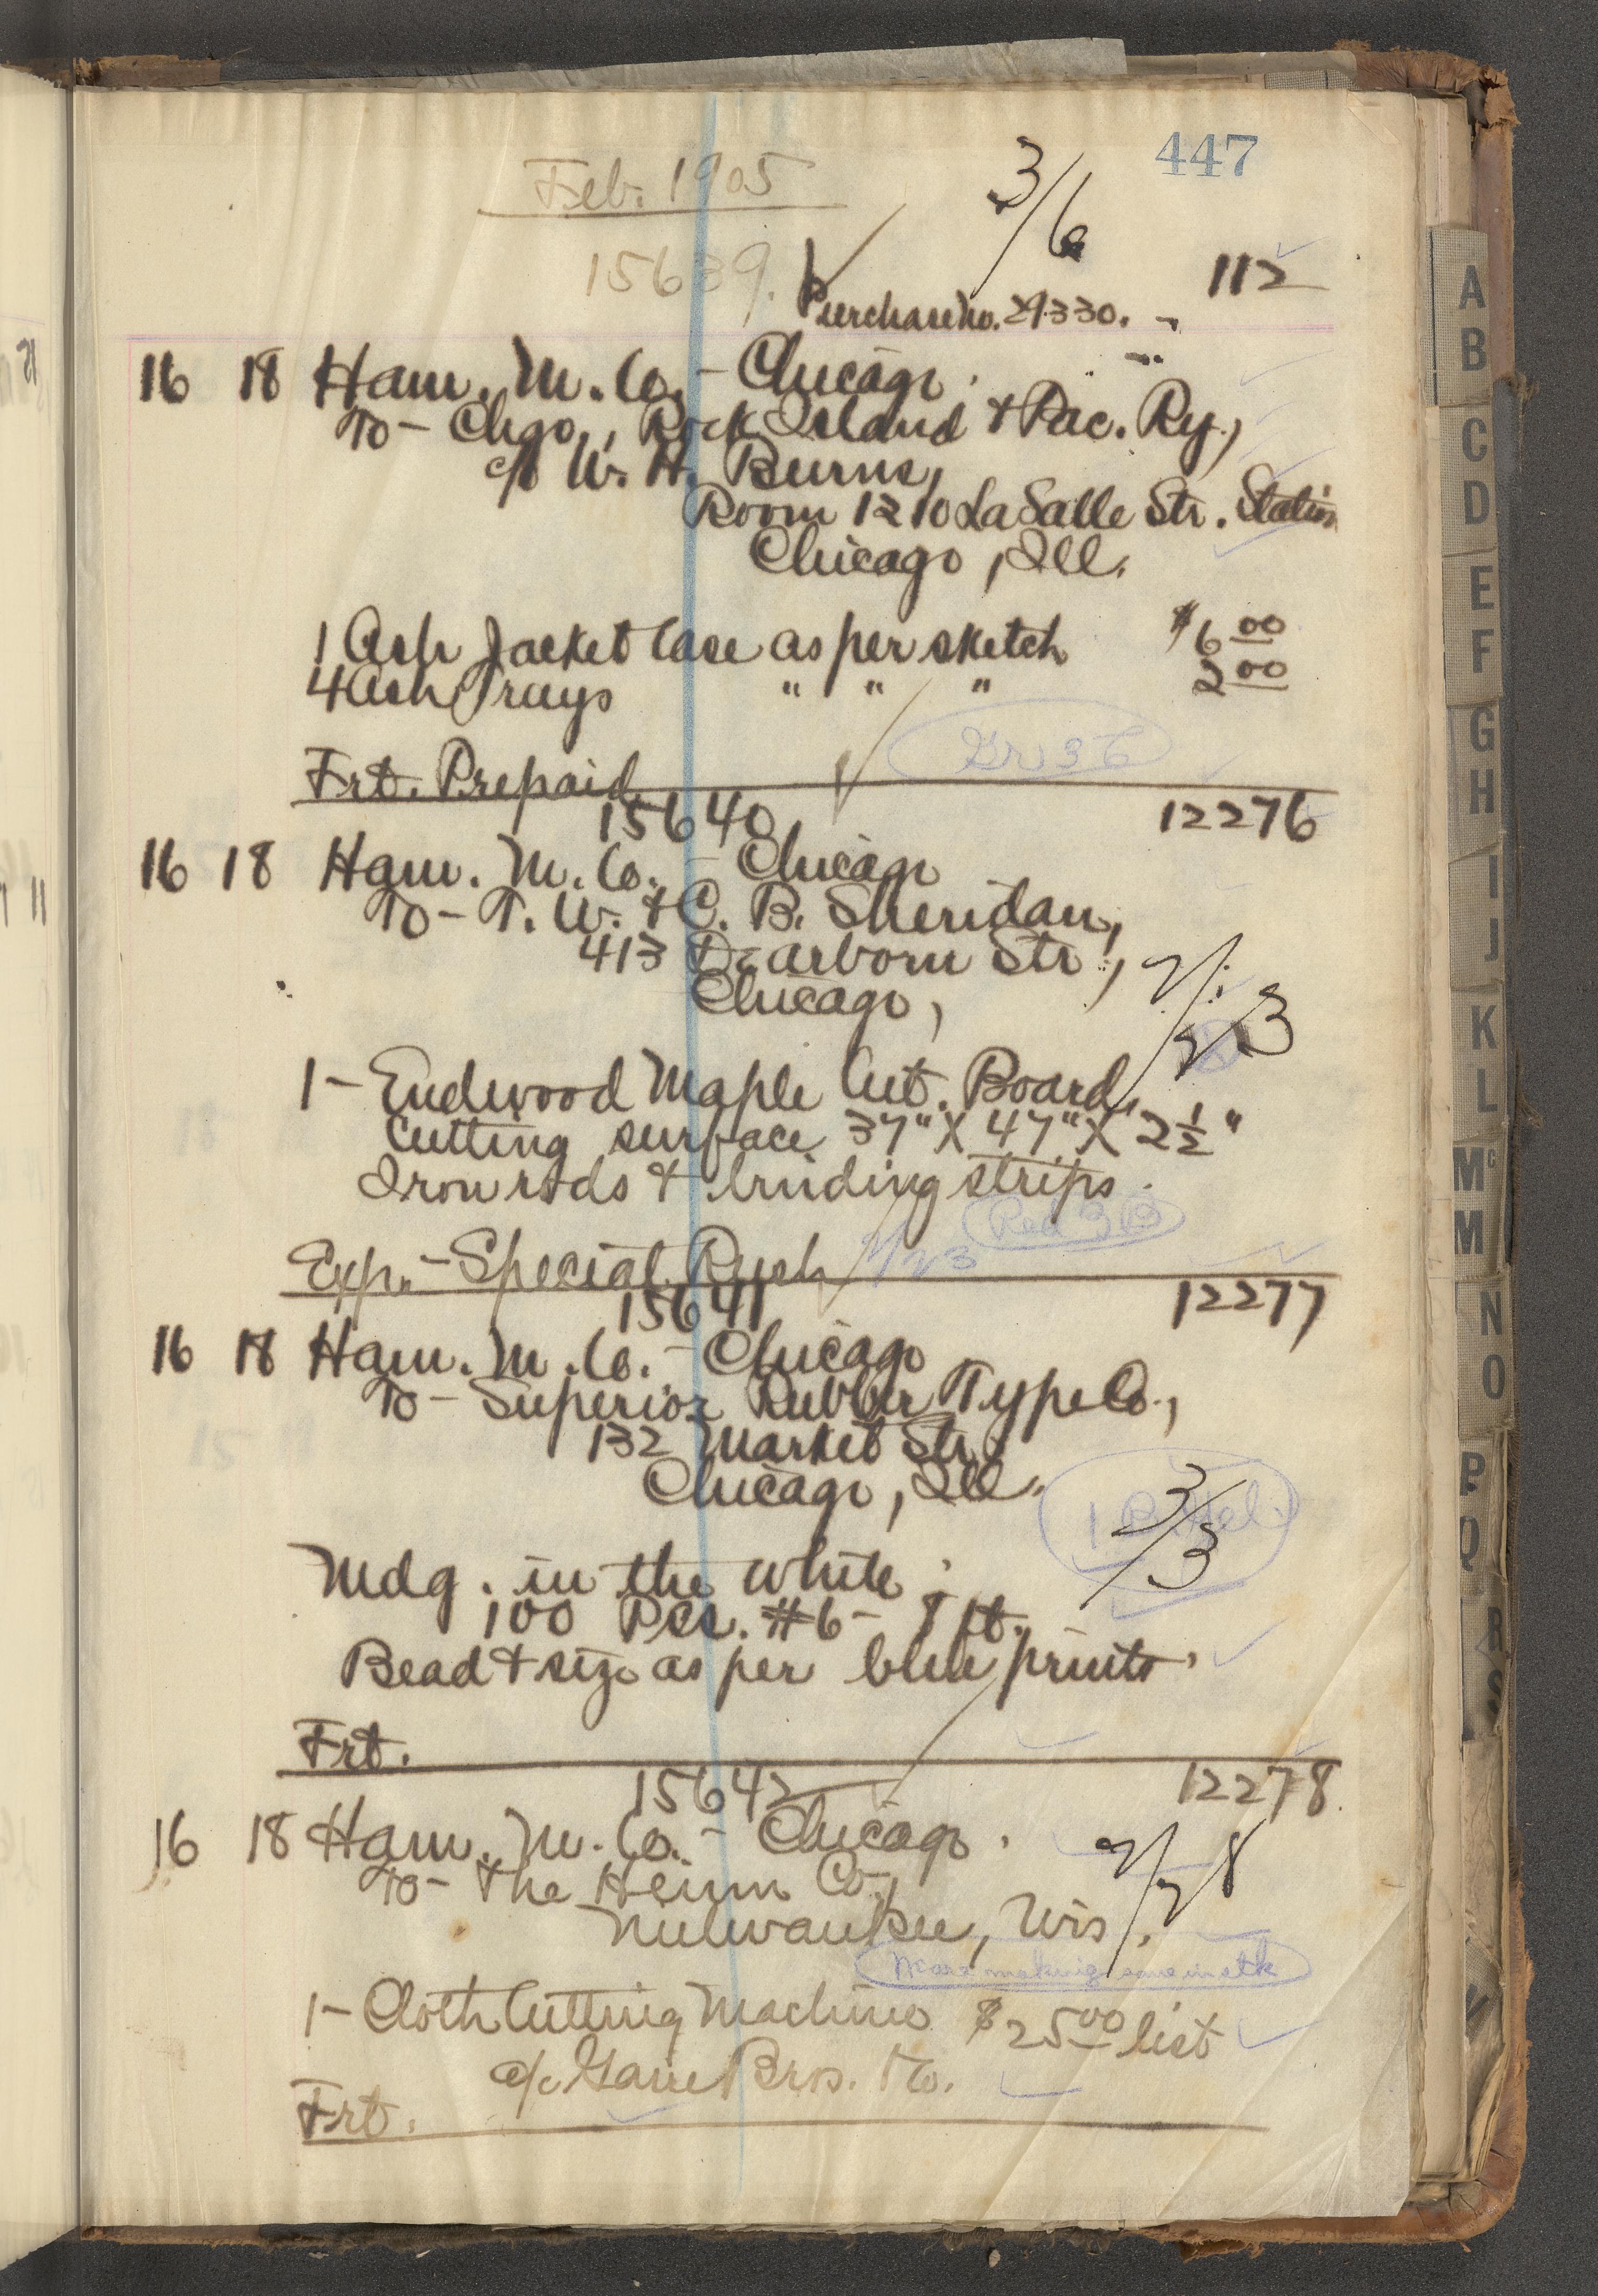 447
Feb. 1905
3/6
15639.
112
Purchase No. 29330.
16 18 Ham. M. Co. - Chicago.
To - Chgo., Rock Island & Pac. Ry.,
c/o W. H. Burns,
Room 1210 LaSalle Str. Station
Chicago, Ill.
1 Ash Jacket Case as per sketch $6 00
4 Ash Trays " " " 2 00
Gr 36
Frt. Prepaid
15640 12276
16 18 Ham. M. Co. - Chicago
To - T. W. & C. B. Sheridan,
413 Dearborn Str.,
Chicago,
2/23
1 - Endwood Maple Cut. Board,
Cutting surface 37" X 47" X 2 1/2"
Iron rods & binding strips.
Exp. - Special Rush 2/23
15641 12277
16 18 Ham. M. Co. - Chicago
To - Superior Rubber Type Co.,
132 Market Str.
Chicago, Ill.
3/3
Mdg. in the white.
100 Pcs. #6 - 8 ft.
Bead & size as per blue prints.
Frt.
15642 12278.
16 18 Ham. M. Co. - Chicago.
2/28
To - The Heinn Co.,
Milwaukee, Wis.
1 - Cloth Cutting Machine $25 00 list
c/o Gane Bros. & Co.
Frt.
A
B
C
D
E
F
G
H
I
J
K
L
Mc
M
N
O
P
Q
R
S